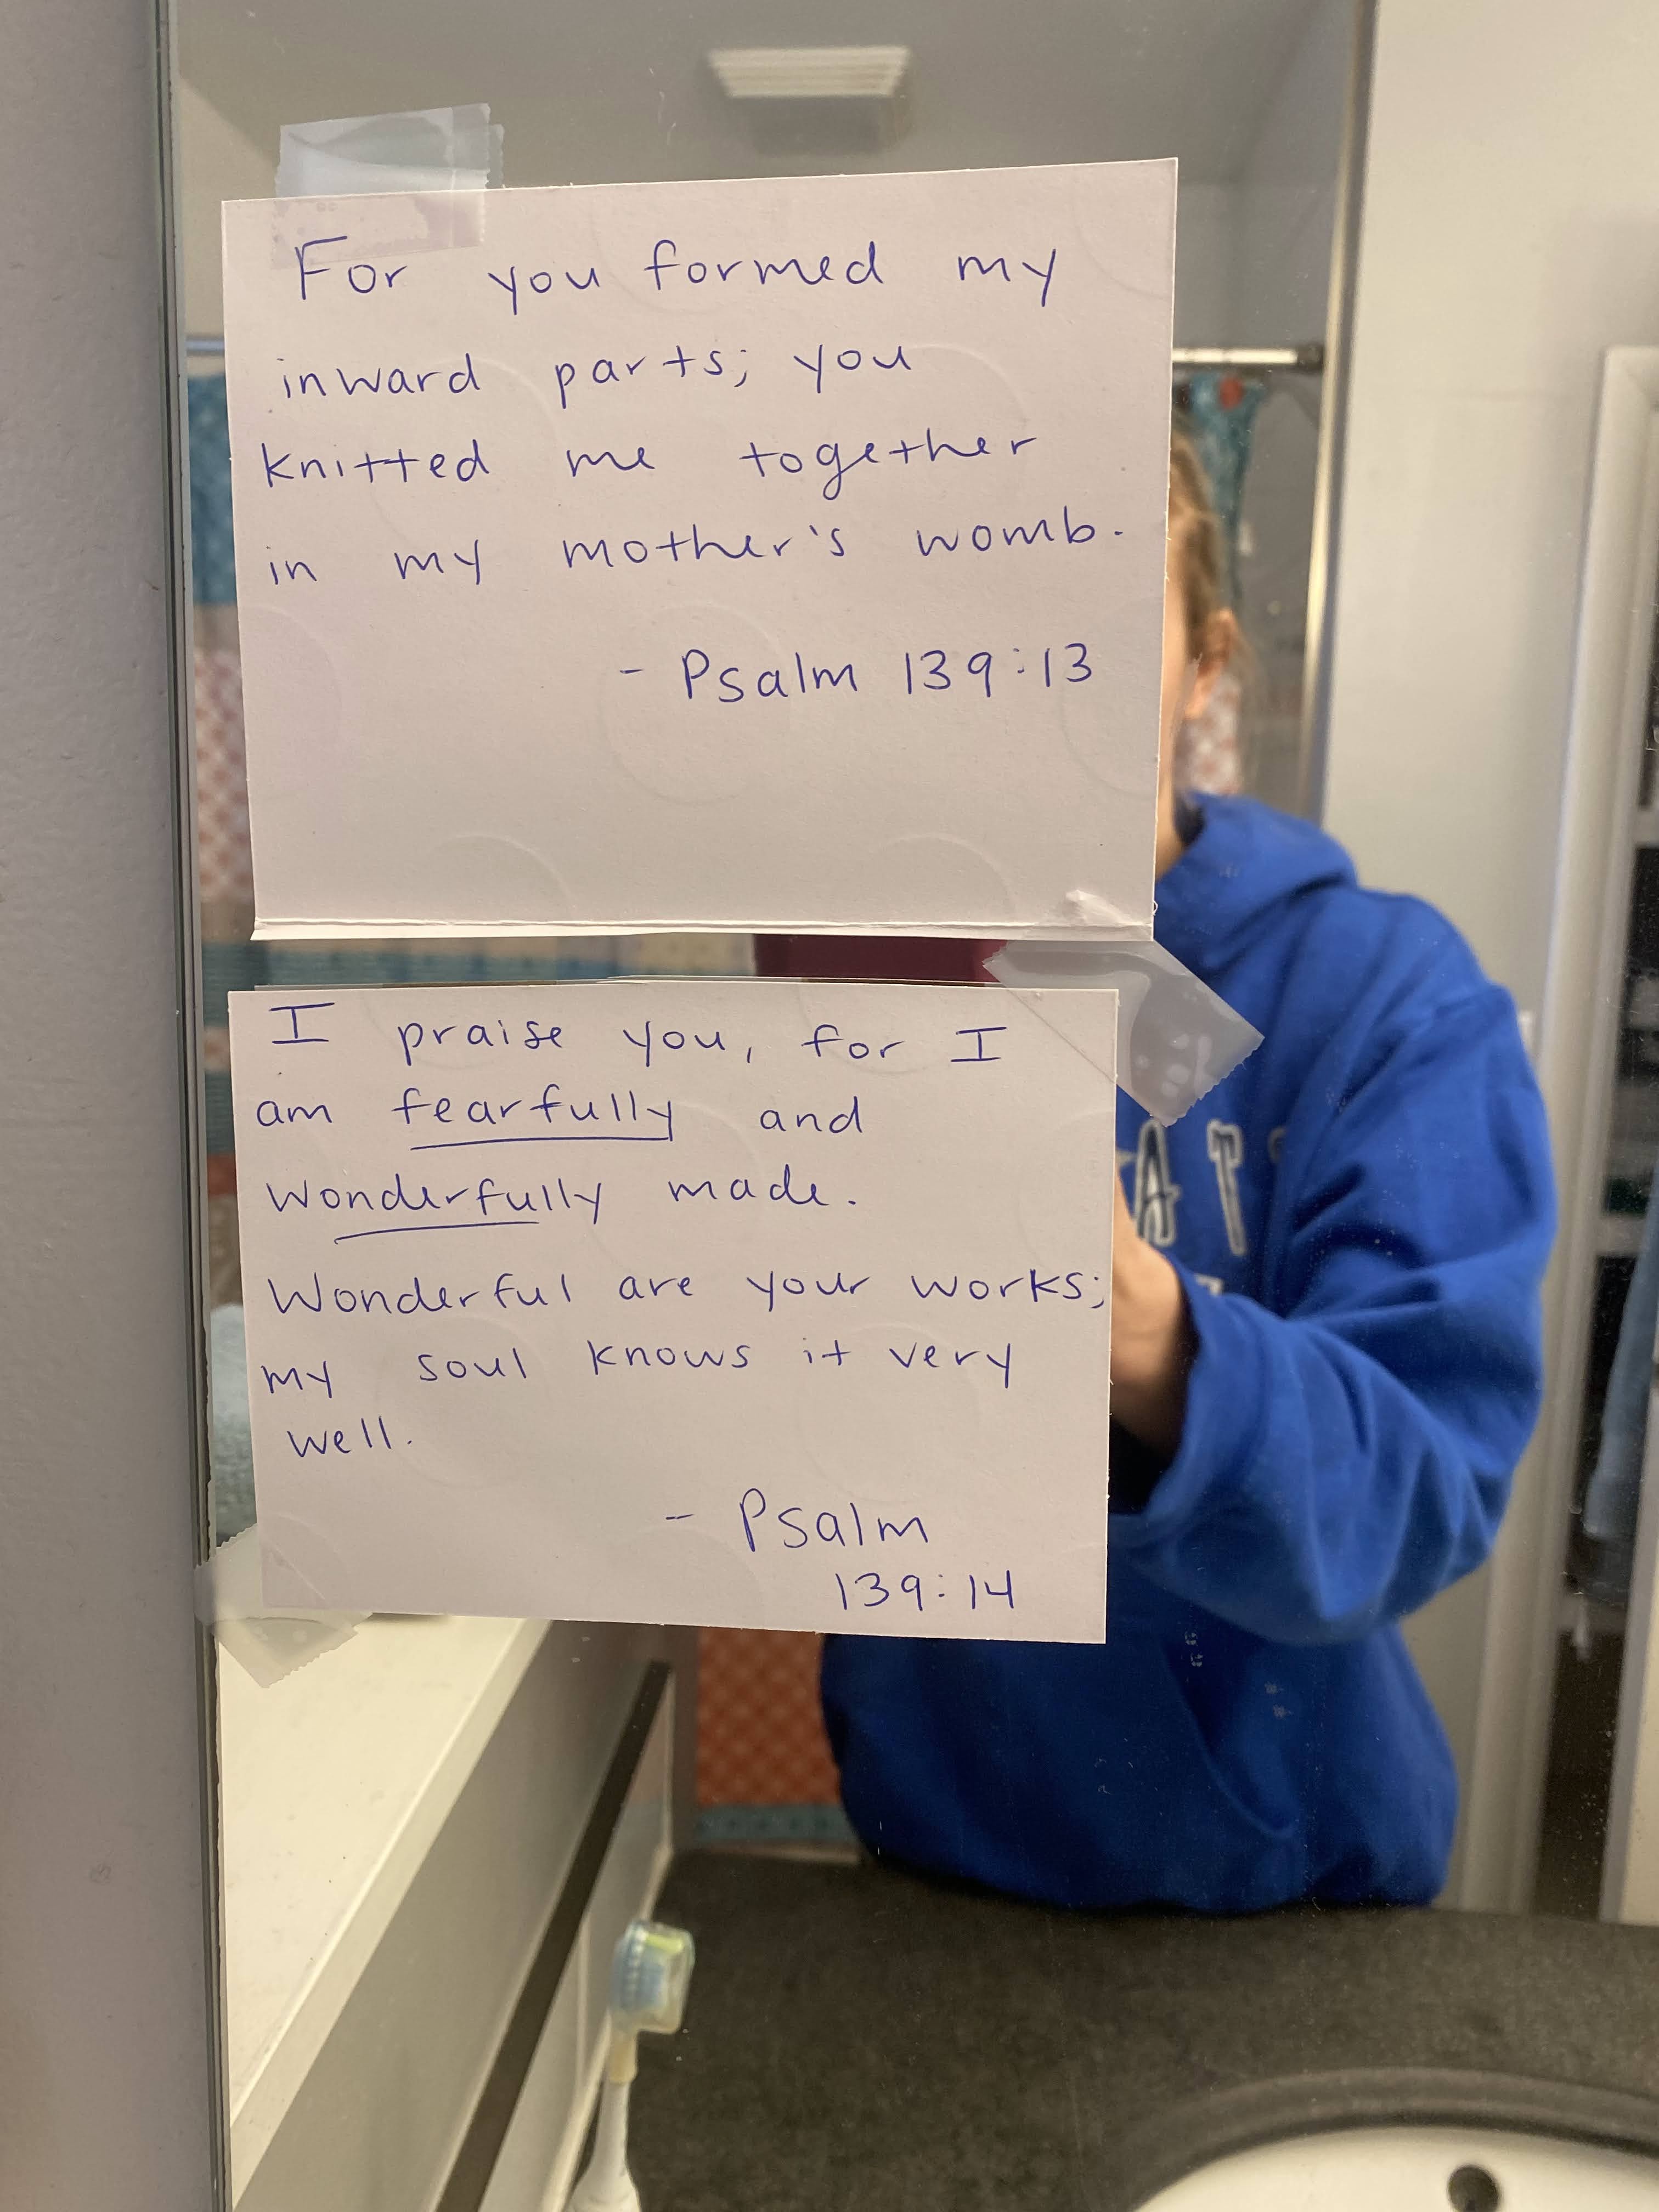 For you formed my
inward parts; you
knitted me together
in my mother's womb.
- Psalm 139:13
I praise you, for I
am fearfully and
wonderfully made.
Wonderful are your works;
my soul knows it very
well.
- Psalm
139:14